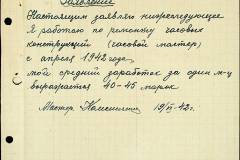 Заявление
Настоящим заявляю нижеследующее
Я работаю по ремонту часовых
конструкций (часовой мастер)
с апреля 1942 года,
мой средний заработок за один м-ц
выражается 40-45 марок
Мастер 19/II-42г.